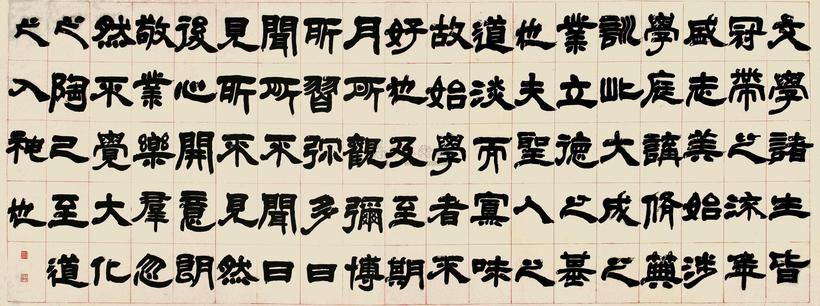 文學諸生皆
冠帶之流年
盛志美始涉
學庭講脩典
訓此大成之
業立德之基
也夫聖人之
道淡而寡味
故始學者不
好也及至期
月所觀彌博
所習弥多日
聞所不聞日
見所不見然
後心開意朗
敬業樂羣忽
然不覺大化
之陶己至道
之入神也